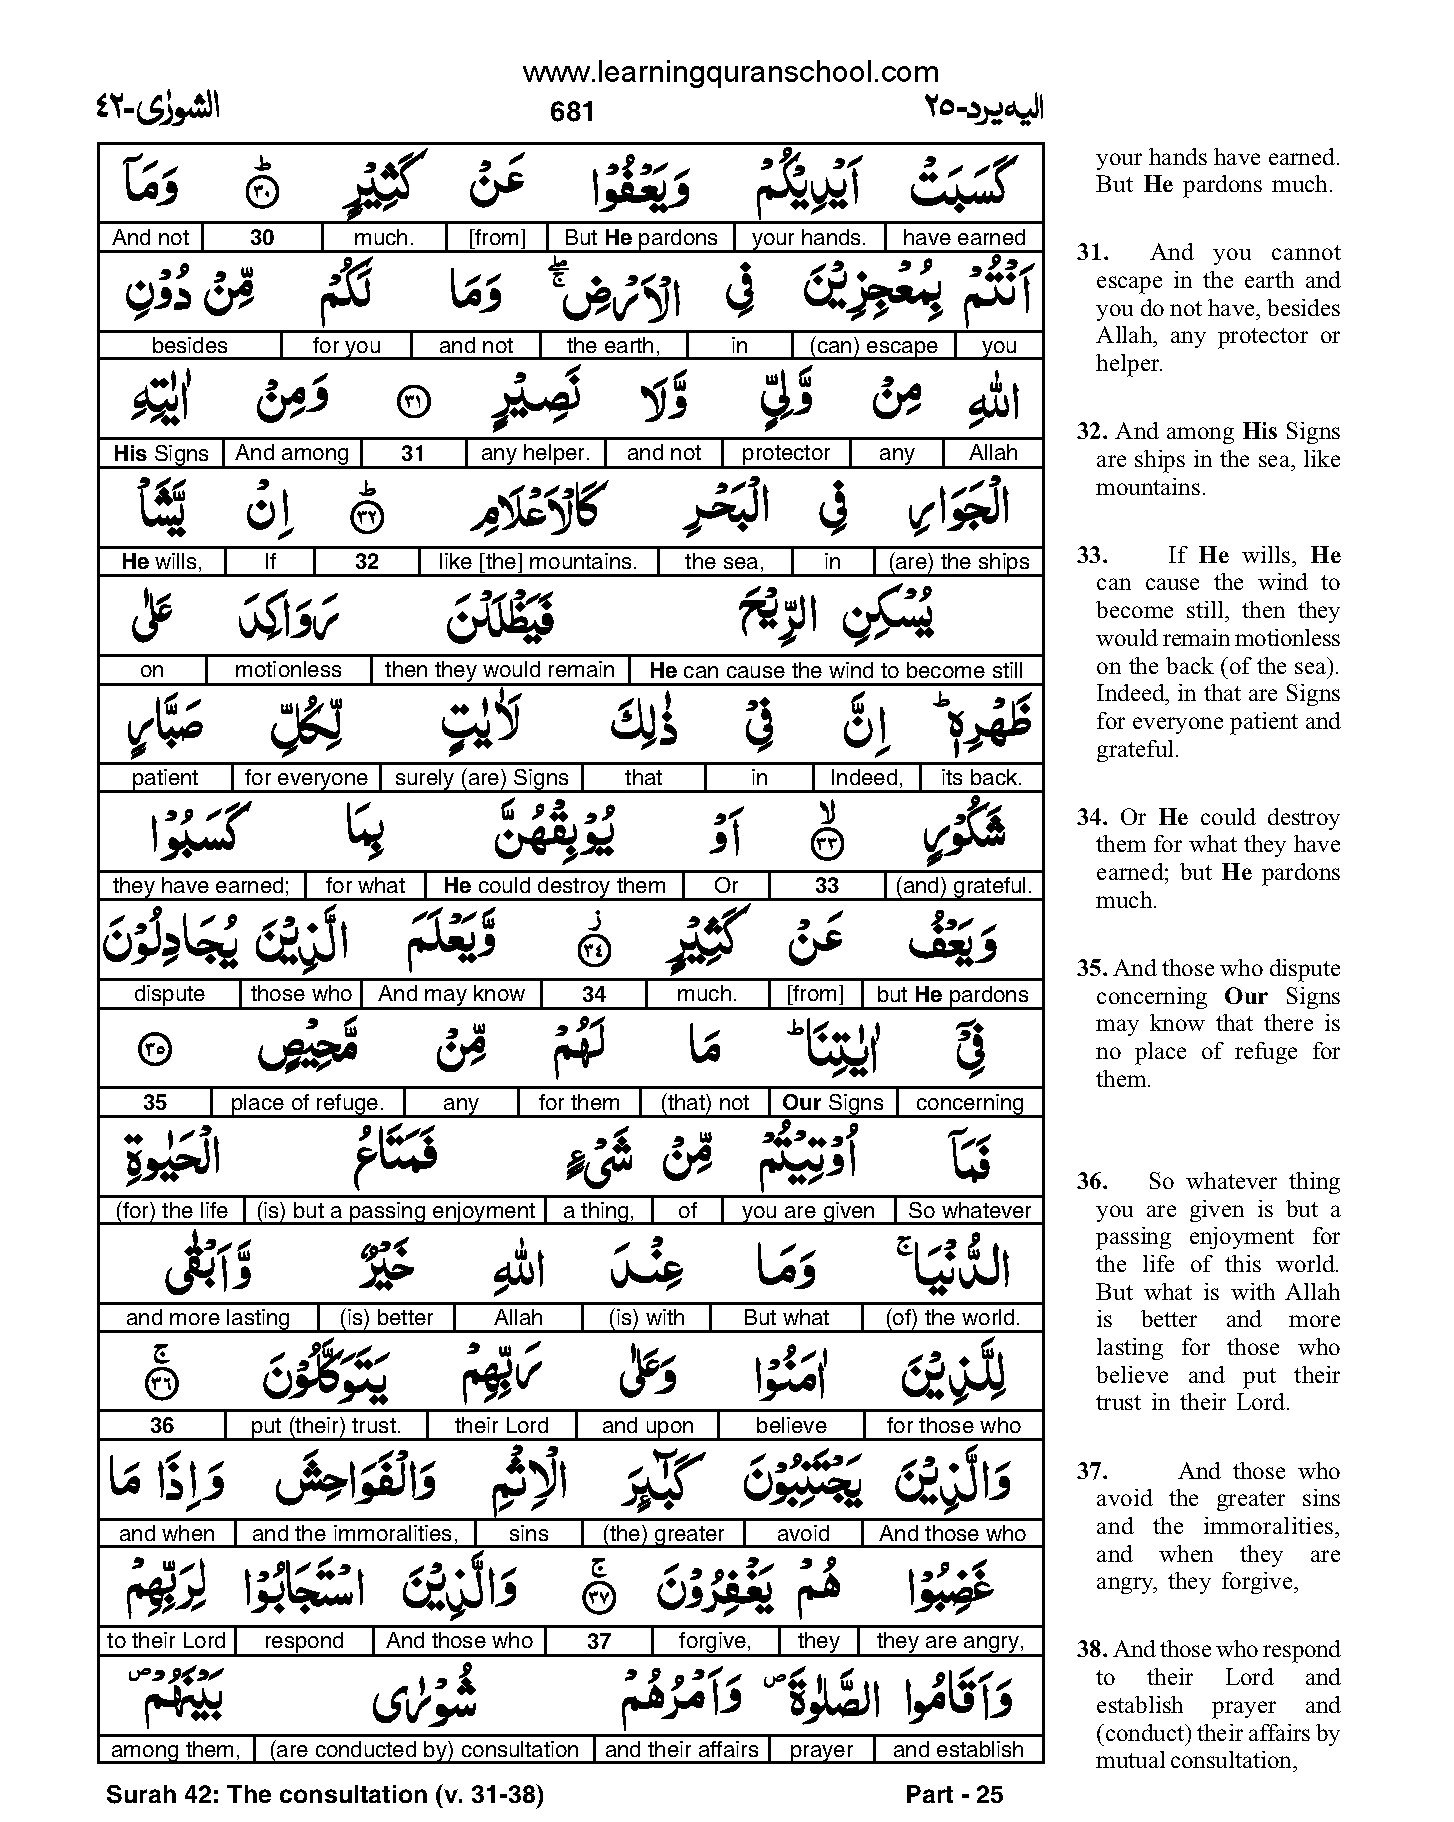 www.learningquranschool.com
الشورٰى-٤٢ 681 اليه يرد-٢٥
كَسَبَتْ اَيْدِيْكُمْ وَيَعْفُوْا عَنْ كَثِيْرٍ ۝٣٠ وَمَآ
have earned your hands. But He pardons [from] much. 30 And not
اَنْتُمْ بِمُعْجِزِيْنَ فِي الْاَرْضِ ۖۚ وَمَا لَكُمْ مِّنْ دُوْنِ
you (can) escape in the earth, and not for you besides
اللّٰهِ مِنْ وَّلِيٍّ وَّلَا نَصِيْرٍ ۝٣١ وَمِنْ اٰيٰتِهِ
Allah any protector and not any helper. 31 And among His Signs
الْجَوَارِ فِي الْبَحْرِ كَالْاَعْلَامِ ۝٣٢ اِنْ يَّشَاْ
(are) the ships in the sea, like [the] mountains. 32 If He wills,
يُسْكِنِ الرِّيْحَ فَيَظْلَلْنَ رَوَاكِدَ عَلٰى
He can cause the wind to become still then they would remain motionless on
ظَهْرِهٖ ؕ اِنَّ فِيْ ذٰلِكَ لَاٰيٰتٍ لِّكُلِّ صَبَّارٍ
its back. Indeed, in that surely (are) Signs for everyone patient
شَكُوْرٍ ۝٣٣ اَوْ يُوْبِقْهُنَّ بِمَا كَسَبُوْا
(and) grateful. 33 Or He could destroy them for what they have earned;
وَيَعْفُ عَنْ كَثِيْرٍ ۝٣٤ وَّيَعْلَمَ الَّذِيْنَ يُجَادِلُوْنَ
but He pardons [from] much. 34 And may know those who dispute
فِيْٓ اٰيٰتِنَا ؕ مَا لَهُمْ مِّنْ مَّحِيْصٍ ۝٣٥
concerning Our Signs (that) not for them any place of refuge. 35
فَمَآ اُوْتِيْتُمْ مِّنْ شَيْءٍ فَمَتَاعُ الْحَيٰوةِ
So whatever you are given of a thing, (is) but a passing enjoyment (for) the life
الدُّنْيَا ۚ وَمَا عِنْدَ اللّٰهِ خَيْرٌ وَّاَبْقٰى
(of) the world. But what (is) with Allah (is) better and more lasting
لِلَّذِيْنَ اٰمَنُوْا وَعَلٰى رَبِّهِمْ يَتَوَكَّلُوْنَ ۝٣٦
for those who believe and upon their Lord put (their) trust. 36
وَالَّذِيْنَ يَجْتَنِبُوْنَ كَبٰٓئِرَ الْاِثْمِ وَالْفَوَاحِشَ وَاِذَا مَا
And those who avoid (the) greater sins and the immoralities, and when
غَضِبُوْا هُمْ يَغْفِرُوْنَ ۝٣٧ وَالَّذِيْنَ اسْتَجَابُوْا لِرَبِّهِمْ
they are angry, they forgive, 37 And those who respond to their Lord
وَاَقَامُوا الصَّلٰوةَ ۪ وَاَمْرُهُمْ شُوْرٰى بَيْنَهُمْ ۪
and establish prayer and their affairs (are conducted by) consultation among them,
your hands have earned.
But He pardons much.
31. And you cannot
escape in the earth and
you do not have, besides
Allah, any protector or
helper.
32. And among His Signs
are ships in the sea, like
mountains.
33. If He wills, He
can cause the wind to
become still, then they
would remain motionless
on the back (of the sea).
Indeed, in that are Signs
for everyone patient and
grateful.
34. Or He could destroy
them for what they have
earned; but He pardons
much.
35. And those who dispute
concerning Our Signs
may know that there is
no place of refuge for
them.
36. So whatever thing
you are given is but a
passing enjoyment for
the life of this world.
But what is with Allah
is better and more
lasting for those who
believe and put their
trust in their Lord.
37. And those who
avoid the greater sins
and the immoralities,
and when they are
angry, they forgive,
38. And those who respond
to their Lord and
establish prayer and
(conduct) their affairs by
mutual consultation,
Surah 42: The consultation (v. 31-38) Part - 25